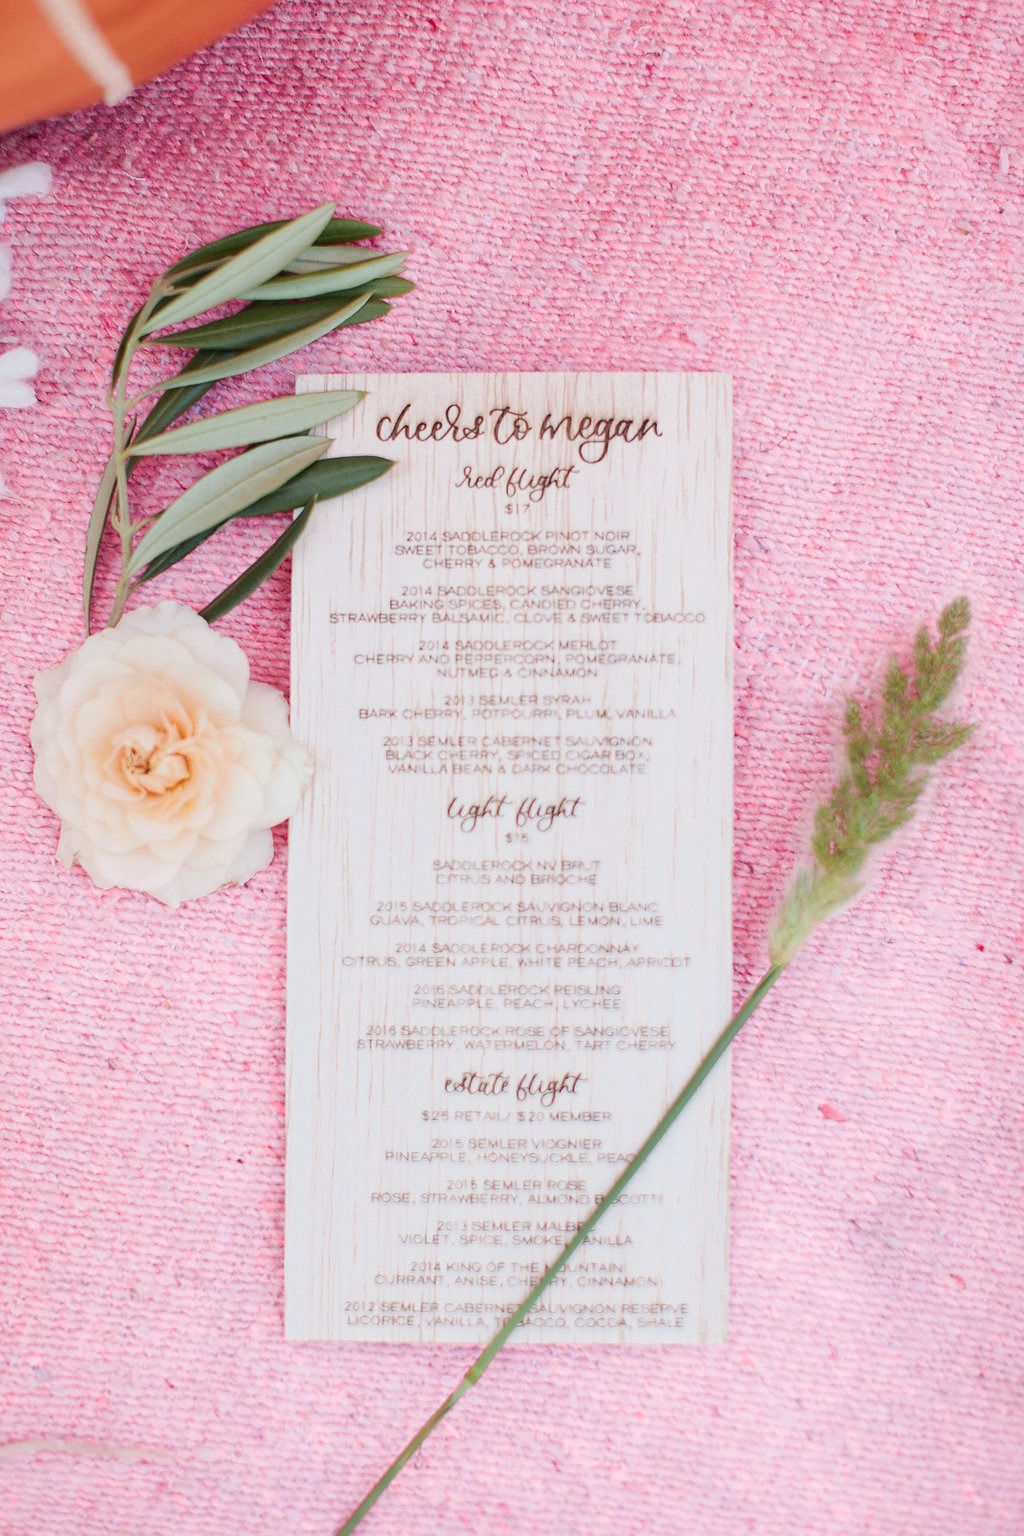 cheers to megan
red flight
$17
2014 SADDLEROCK PINOT NOIR
SWEET TOBACCO, BROWN SUGAR,
CHERRY & POMEGRANATE
2014 SADDLEROCK SANGIOVESE
BAKING SPICES, CANDIED CHERRY,
STRAWBERRY BALSAMIC, CLOVE & SWEET TOBACCO
2014 SADDLEROCK MERLOT
CHERRY AND PEPPERCORN, POMEGRANATE,
NUTMEG & CINNAMON
2013 SEMLER SYRAH
BARK CHERRY, POTPOURRI, PLUM, VANILLA
2013 SEMLER CABERNET SAUVIGNON
BLACK CHERRY, SPICED CIGAR BOX,
VANILLA BEAN & DARK CHOCOLATE
light flight
$15
SADDLEROCK NV BRUT
CITRUS AND BRIOCHE
2015 SADDLEROCK SAUVIGNON BLANC
GUAVA, TROPICAL CITRUS, LEMON, LIME
2014 SADDLEROCK CHARDONNAY
CITRUS, GREEN APPLE, WHITE PEACH, APRICOT
2016 SADDLEROCK REISLING
PINEAPPLE, PEACH, LYCHEE
2016 SADDLEROCK ROSE OF SANGIOVESE
STRAWBERRY, WATERMELON, TART CHERRY
estate flight
$25 RETAIL/ $20 MEMBER
2015 SEMLER VIOGNIER
PINEAPPLE, HONEYSUCKLE, PEAC
2015 SEMLER ROSE
ROSE, STRAWBERRY, ALMOND BISCOTTI
2013 SEMLER MALBEC
VIOLET, SPICE, SMOKE, VANILLA
2014 KING OF THE MOUNTAIN
CURRANT, ANISE, CHERRY, CINNAMON
2012 SEMLER CABERNET SAUVIGNON RESERVE
LICORICE, VANILLA, TOBACCO, COCOA, SHALE